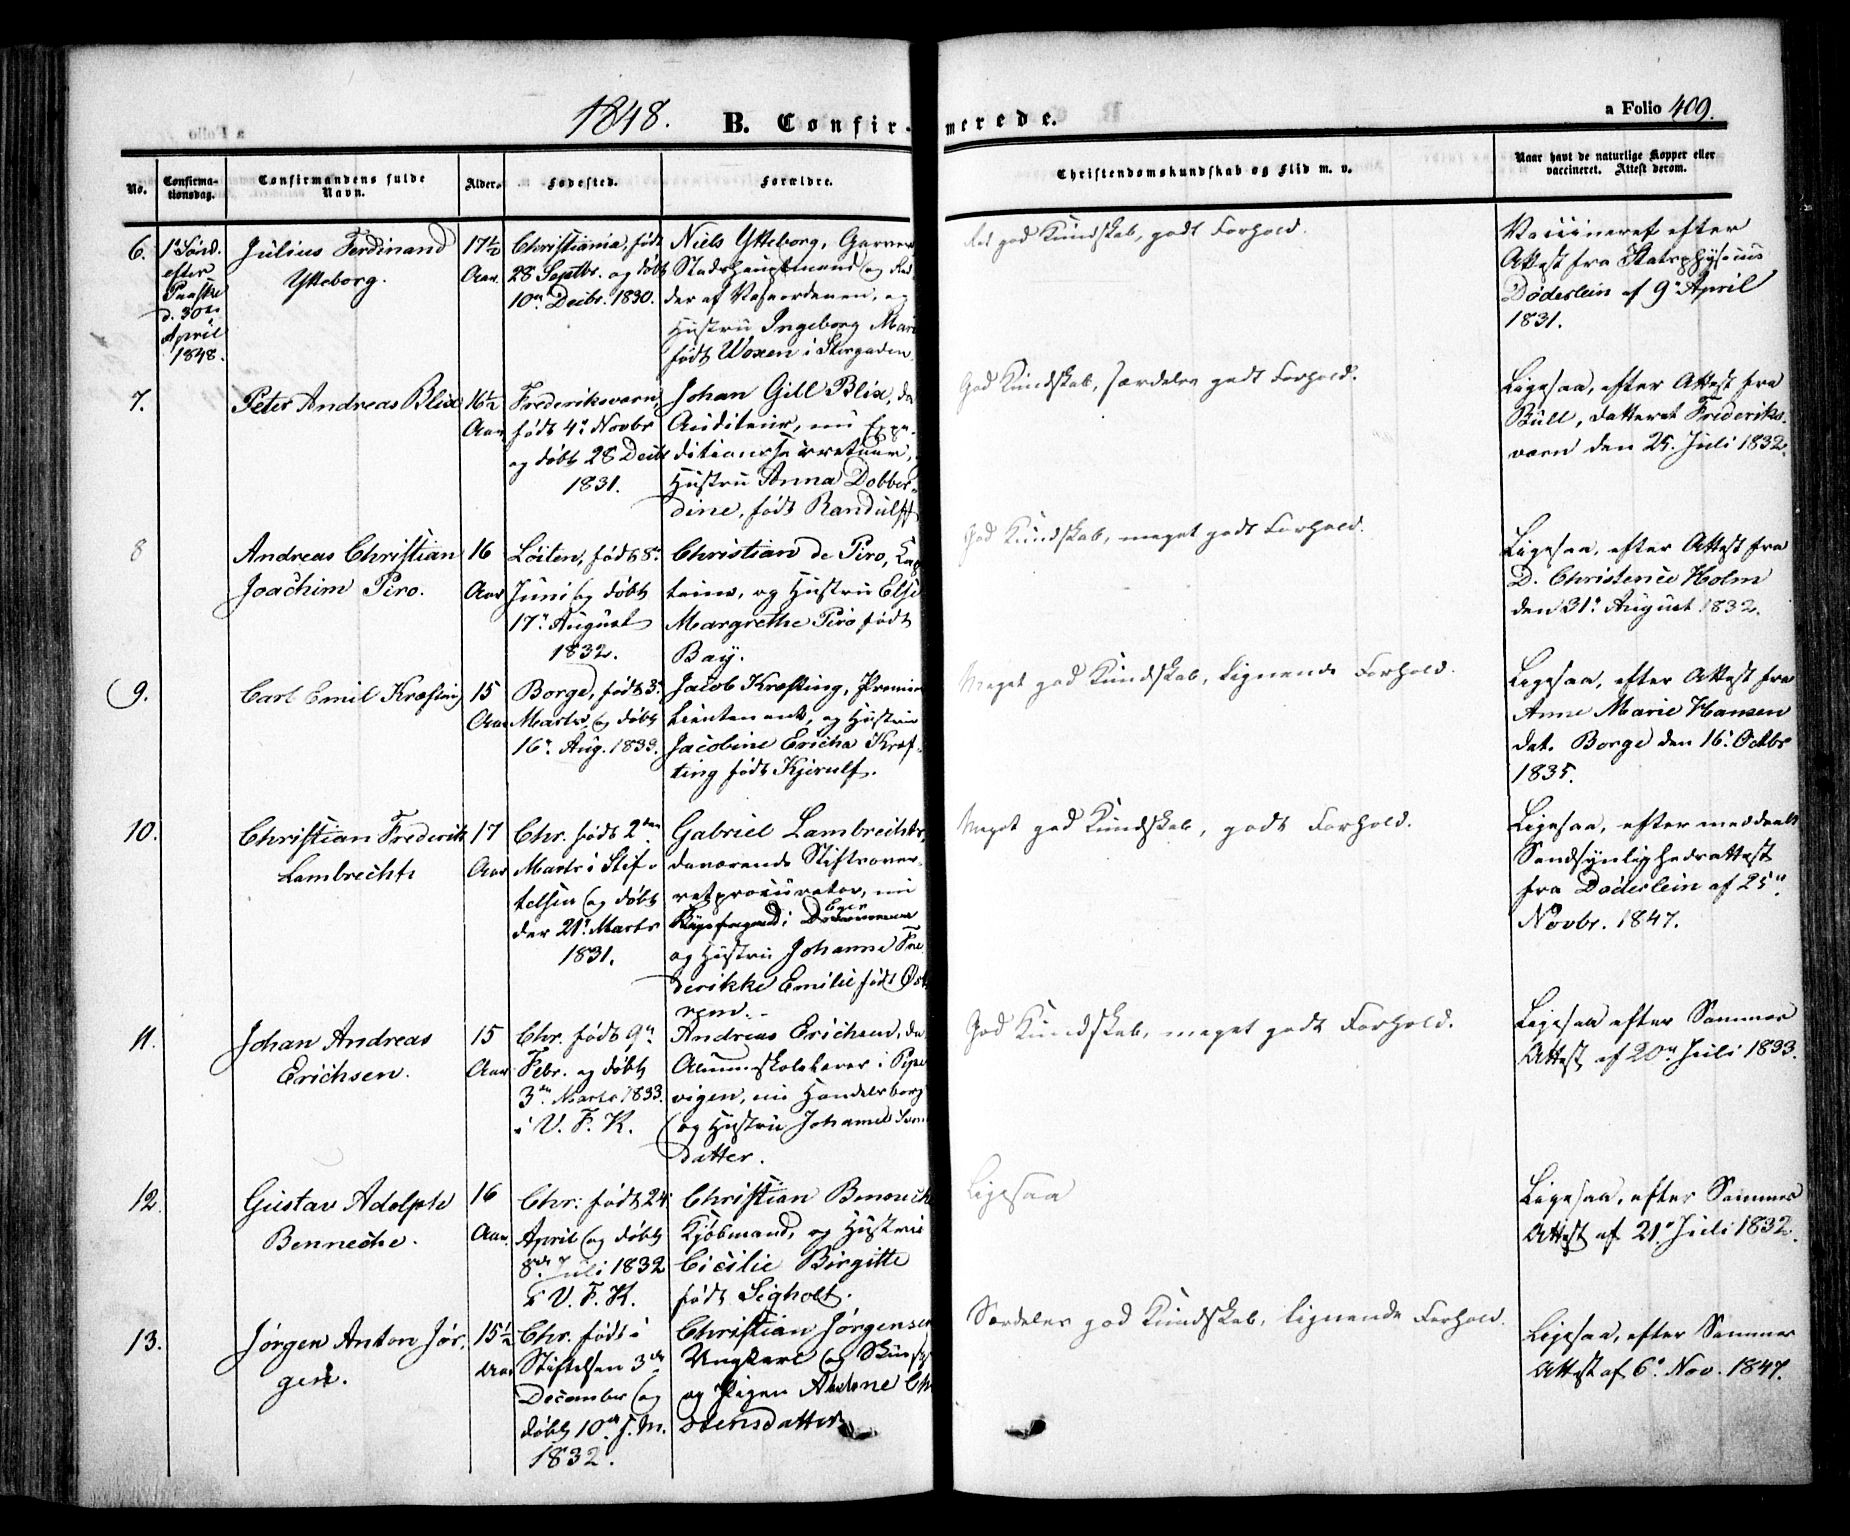 1848.
B. Confir-
merede.
a Folio 409.
No.
Confirma-
tionsdag.
Confirmandens fulde
Navn.
Alder.
Fødested.
Forældre.
Christendomskundskab og Flid m. v.
Naar havt de naturlige Kopper eller
vaccineret. Attest derom.
6.
1ste Sønd.
efter
Paaske
d. 30te
April
1848.
Julius Ferdinand
Ytteborg.
17½
Aar
Christiania, født
28 Septbr. og døbt
10de Decbr. 1830.
Niels Ytteborg, Garver
Stadshauptmand og Rid
der af Vasaordenen, og
Hustru Ingeborg Mari
født Woxen i Storgaden.
god Kundskab, godt Forhold.
Vaccineret efter
Attest fra Statsphysicus
Døderlein af 9de April
1831.
7.
Peter Andreas Blix
16½
Aar
Frederiksværn,
født 4de Novbr
og døbt 28 Decbr
1831.
Johan Gill Blix, da
Auditeur, nu Expe-
ditionssecretair,
Hustru Anna Dobber-
dine, født Randulff
God Kundskab, særdeles godt Forhold.
Ligesaa, efter Attest fra
Bull, datteret Frederiks-
værn den 25. Juli 1832.
8
Andreas Christian
Joachim Piro.
16
Aar
Løiten, født 8de
Juni og døbt
17de August
1832.
Christian de Piro, Cap
tein, og Hustru Else
Margrethe Piro født
Bay.
God Kundskab, meget godt Forhold.
Ligesaa, efter Attest fra
D. Christence Holm
den 31te August 1832.
9.
Carl Emil Kræfting
15
Aar
Borge, født 3
Marts, og døbt
16de Aug. 1833.
Jacob Kræfting, Premier
Lieutenant, og Hustru
Jacobine Ericha Kræf-
ting født Kjerulf.
Meget god Kundskab, lignende Forhold.
Ligesaa, efter Attest fra
Anne Marie Hansen
dat. Borge den 16de Octbr
1835.
10.
Christian Frederik
Lambrechts
17
Aar
Chr. født 2den
Marts i Stif-
telsen og døbt
der 21de Marts
1831.
Gabriel Lambrechts,
daværende Stiftsover-
retsprocurator, nu
i Eger
og Hustru Johanne Fre
derikke Emilie født Øst
rem.
Meget god Kundskab, godt Forhold.
Ligesaa, efter meddeelt
Sandsynlighedsattest
fra Døderlein af 25de
Novbr. 1847.
11.
Johan Andreas
Erichsen.
15
Aar
Chr. født 9de
Febr. og døbt
3die Marts 1833.
i V. F. K.
Andreas Erichsen, da
Almueskolelærer i Piper
vigen, nu Handelsborg
og Hustru Johanne
datter.
God Kundskab, meget godt Forhold.
Ligesaa efter Sammes
Attest af 20de Juli 1833.
12.
Gustav Adolph
Benneche.
16
Aar.
Chr. født 24
April og døbt
8de Juli 1832
i V. F. K.
Christian Bennech
Kjøbmand, og Hustru
Cicilie Birgitte
født Sigholt.
Ligesaa
Ligesaa, efter Sammes
Attest af 21de Juli 1832.
13.
Jørgen Anton Jør-
gens.
15½
Aar
Chr. født i
Stiftelsen 3die
December og
døbt 10de s. M.
1832.
Christian Jørgensen
Ungkarl og
og Pigen
stensdatter
Særdeles god Kundskab, lignende Forhold.
Ligesaa, efter Sammes
Attest af 6te Nov. 1847.